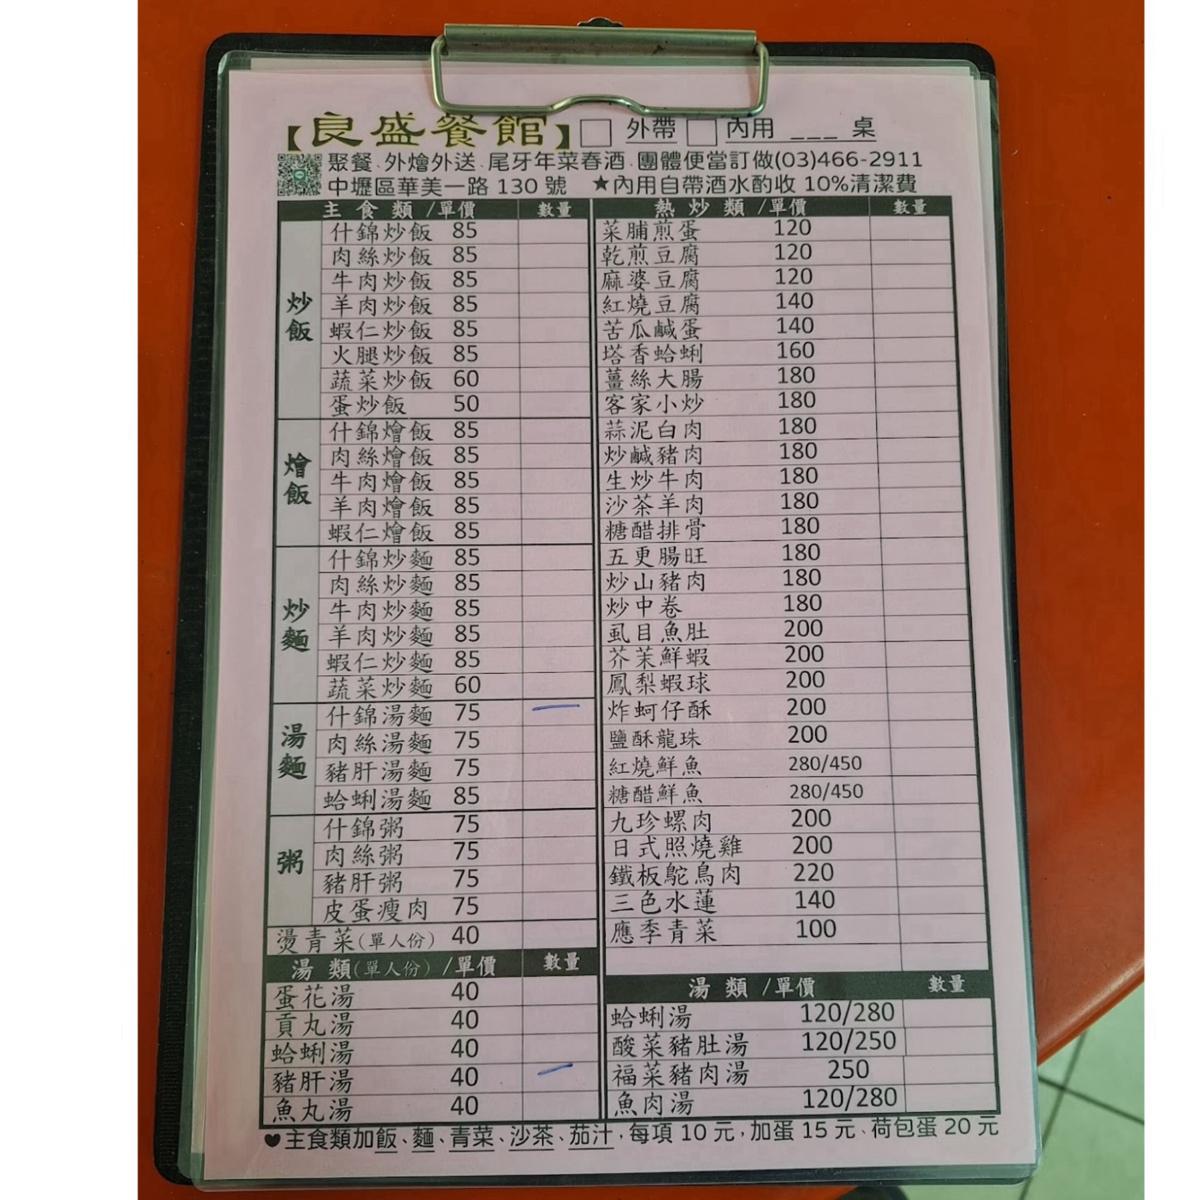 【良盛餐館】□外帶□內用 ___ 桌
聚餐、外燴外送、尾牙年菜春酒、團體便當訂做(03)466-2911
中壢區華美一路 130 號 ★內用自帶酒水酌收 10%清潔費
主 食 類 /單價 數量
炒飯
什錦炒飯 85
肉絲炒飯 85
牛肉炒飯 85
羊肉炒飯 85
蝦仁炒飯 85
火腿炒飯 85
蔬菜炒飯 60
蛋炒飯 50
燴飯
什錦燴飯 85
肉絲燴飯 85
牛肉燴飯 85
羊肉燴飯 85
蝦仁燴飯 85
炒麵
什錦炒麵 85
肉絲炒麵 85
牛肉炒麵 85
羊肉炒麵 85
蝦仁炒麵 85
蔬菜炒麵 60
湯麵
什錦湯麵 75
肉絲湯麵 75
豬肝湯麵 75
蛤蜊湯麵 85
粥
什錦粥 75
肉絲粥 75
豬肝粥 75
皮蛋瘦肉 75
燙青菜(單人份) 40
湯 類(單人份) /單價 數量
蛋花湯 40
貢丸湯 40
蛤蜊湯 40
豬肝湯 40
魚丸湯 40
熱 炒 類 /單價 數量
菜脯煎蛋 120
乾煎豆腐 120
麻婆豆腐 120
紅燒豆腐 140
苦瓜鹹蛋 140
塔香蛤蜊 160
薑絲大腸 180
客家小炒 180
蒜泥白肉 180
炒鹹豬肉 180
生炒牛肉 180
沙茶羊肉 180
糖醋排骨 180
五更腸旺 180
炒山豬肉 180
炒中卷 180
虱目魚肚 200
芥茉鮮蝦 200
鳳梨蝦球 200
炸蚵仔酥 200
鹽酥龍珠 200
紅燒鮮魚 280/450
糖醋鮮魚 280/450
九珍螺肉 200
日式照燒雞 200
鐵板鴕鳥肉 220
三色水蓮 140
應季青菜 100
湯 類 /單價 數量
蛤蜊湯 120/280
酸菜豬肚湯 120/250
福菜豬肉湯 250
魚肉湯 120/280
♥主食類加飯、麵、青菜、沙茶、茄汁,每項 10 元,加蛋 15 元、荷包蛋 20 元